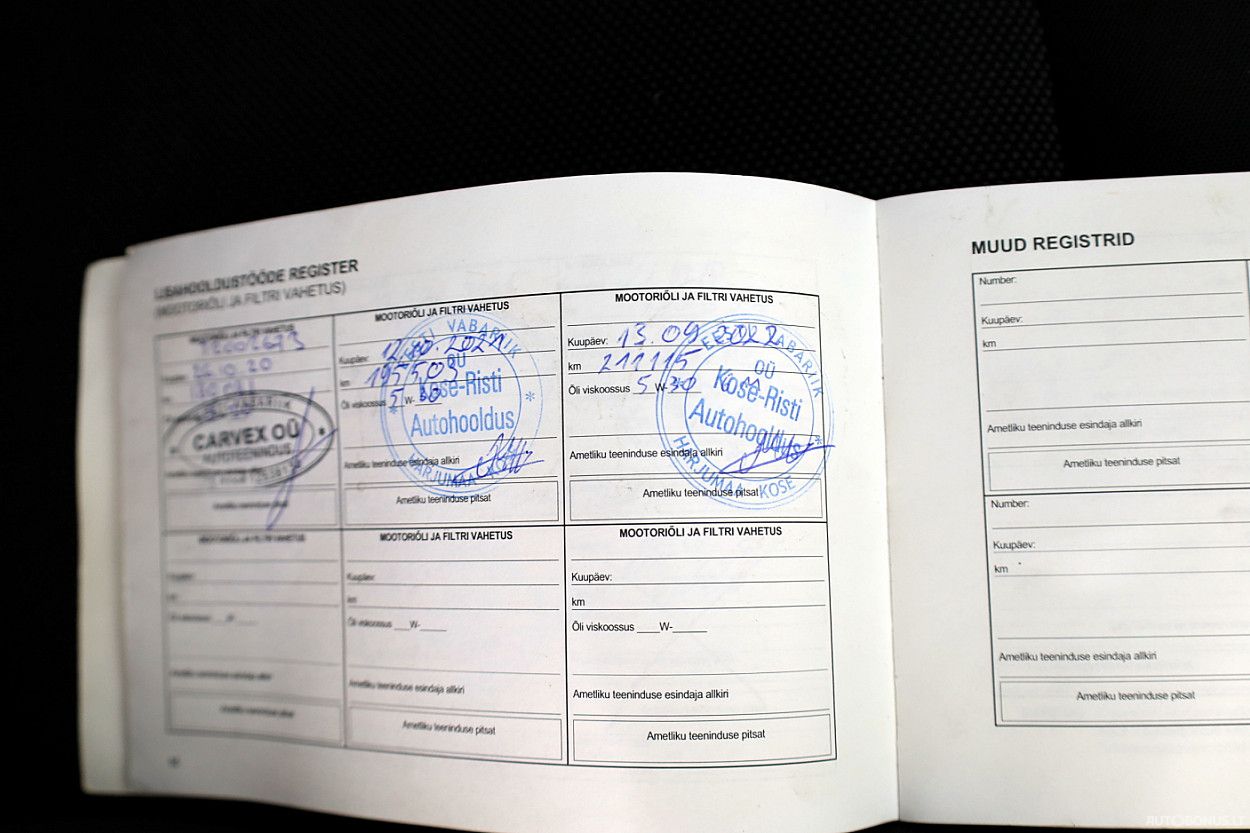 LISAHOOLDUSTÖÖDE REGISTER
(MOOTORIÕLI JA FILTRI VAHETUS)
MOOTORIÕLI JA FILTRI VAHETUS
CARVEX OÜ
AUTOTEENINDUS
MOOTORIÕLI JA FILTRI VAHETUS
Kuupäev: 12.10.2021
km 195503
Õli viskoossus 5 W- 30
EESTI VABARIIK
OÜ
Kose-Risti
Autohooldus
HARJUMAA
Ametliku teeninduse esindaja allkiri
Ametliku teeninduse pitsat
MOOTORIÕLI JA FILTRI VAHETUS
Kuupäev: 13.09 2022
km 211115
Õli viskoossus 5 W-30
EESTI VABARIIK
OÜ
Kose-Risti
Autohooldus
HARJUMAA KOSE
Ametliku teeninduse esindaja allkiri
Ametliku teeninduse pitsat
MOOTORIÕLI JA FILTRI VAHETUS
MOOTORIÕLI JA FILTRI VAHETUS
Kuupäev:
km
Õli viskoossus ___W-_____
Ametliku teeninduse esindaja allkiri
Ametliku teeninduse pitsat
MOOTORIÕLI JA FILTRI VAHETUS
Kuupäev:
km
Õli viskoossus ____W-______
Ametliku teeninduse esindaja allkiri
Ametliku teeninduse pitsat
MUUD REGISTRID
Number:
Kuupäev:
km
Ametliku teeninduse esindaja allkiri
Ametliku teeninduse pitsat
Number:
Kuupäev:
km
Ametliku teeninduse esindaja allkiri
Ametliku teeninduse pitsat
AUTOBONUS.LT